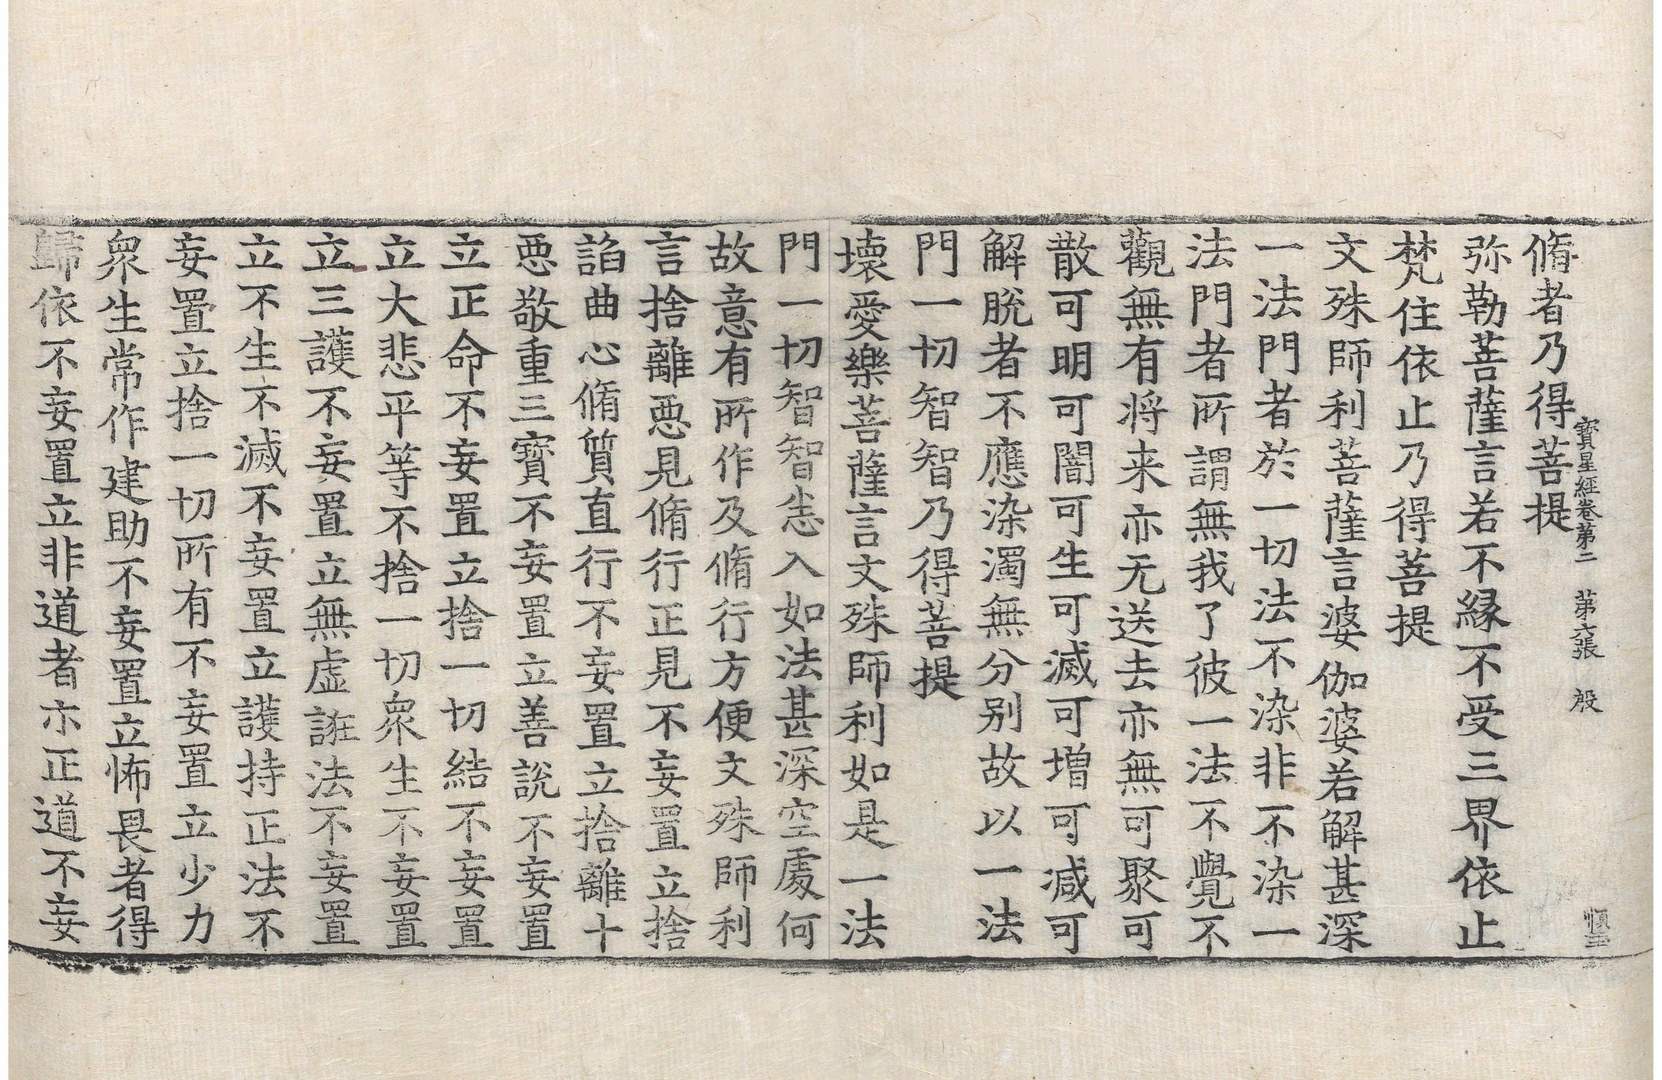 寳星經卷第二　第六張　殷
脩者乃得菩提
弥勒菩薩言若不縁不受三界依止
梵住依止乃得菩提
文殊師利菩薩言婆伽婆若解甚深
一法門者於一切法不染非不染一
法門者所謂無我了彼一法不覺不
觀無有将来亦无送去亦無可聚可
散可明可闇可生可滅可増可減可
解脫者不應染濁無分别故以一法
門一切智智乃得菩提
壞愛樂菩薩言文殊師利如是一法
門一切智智恙入如法甚深空處何
故意有所作及脩行方便文殊師利
言捨離惡見脩行正見不妄置立捨
諂曲心脩質直行不妄置立捨離十
惡敬重三寳不妄置立善說不妄置
立正命不妄置立捨一切結不妄置
立大悲平等不捨一切衆生不妄置
立三護不妄置立無虛誑法不妄置
立不生不滅不妄置立護持正法不
妄置立捨一切所有不妄置立少力
衆生常作建助不妄置立怖畏者得
歸依不妄置立非道者示正道不妄